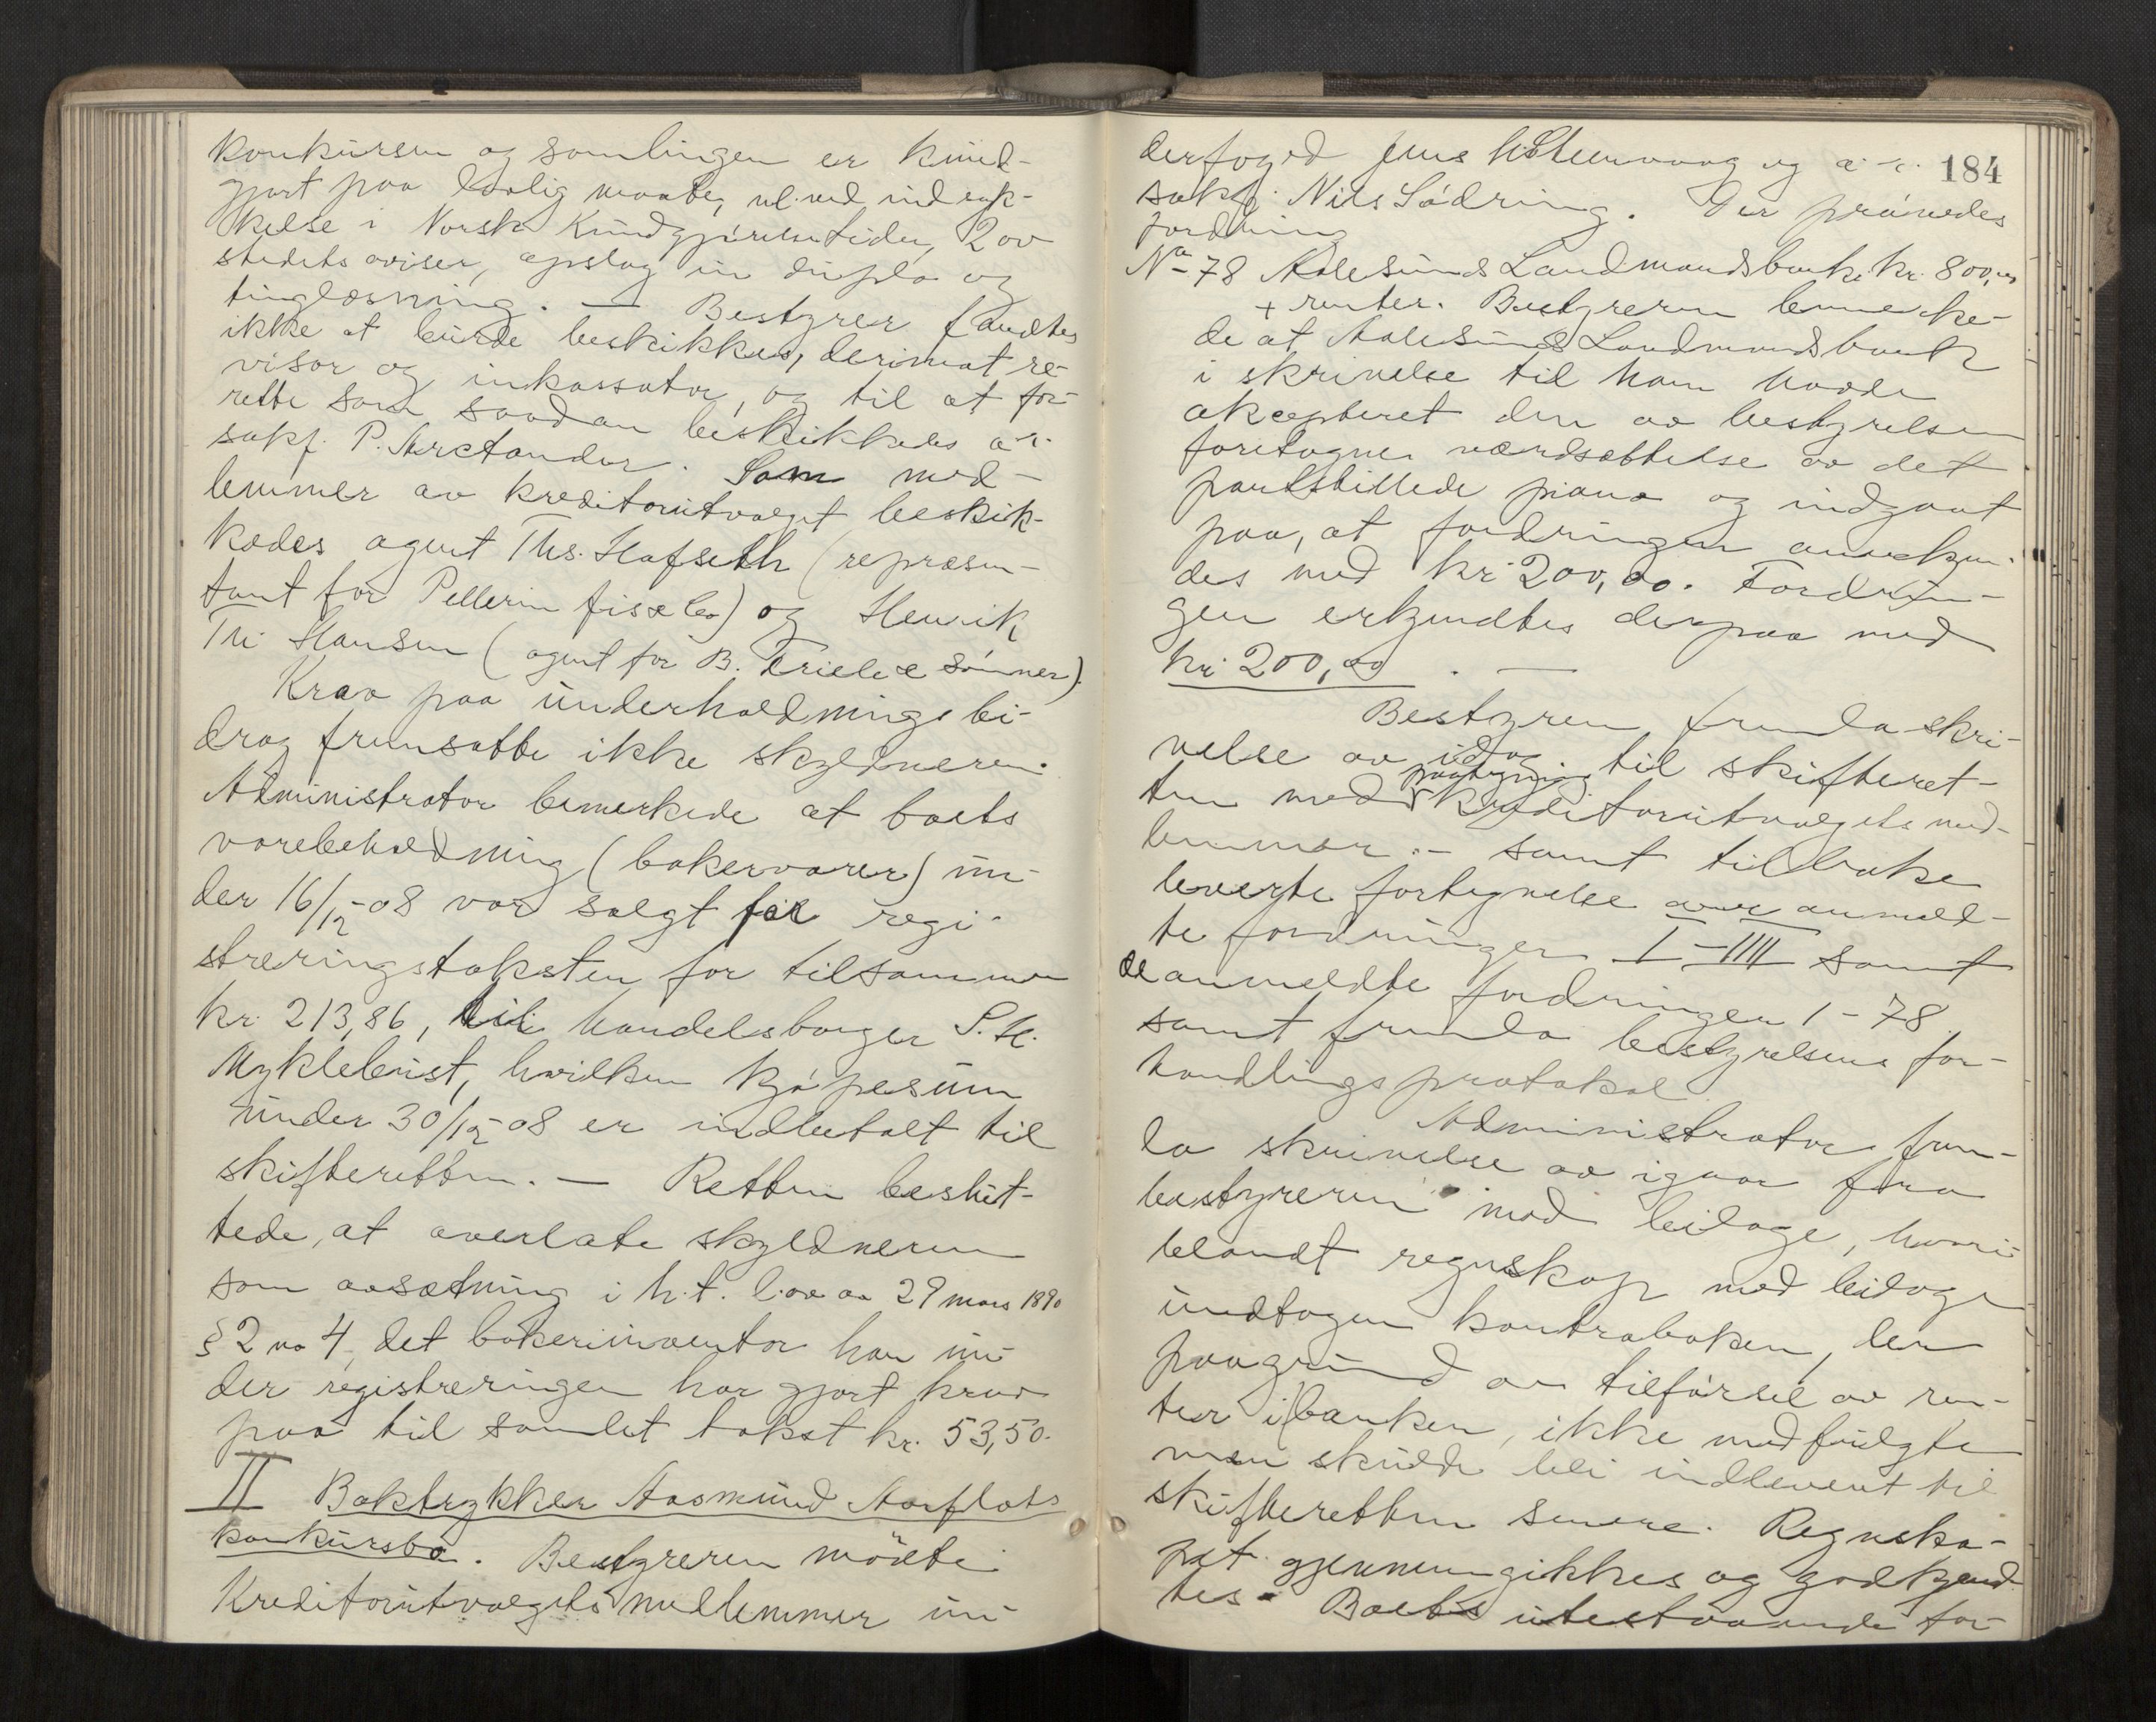 konkursen og samlingen er kund-
gjort paa lovlig maate, nl. ved indryk-
kelse i Norsk Kundgjørelsestidende, 2 av
stedets aviser, opslag in duplo og
tinglæsning. — Bestyrer fandtes
ikke at burde beskikkes, derimot re-
visor og inkassator, og til at for-
rette som saadan beskikkedes o.r.
sakf. P. Arctander. Som med-
lemmer av kreditorutvalget beskik-
kedes agent Ths. Hafseth (repræsen-
tant for Pellerin fils & Co) og Henrik
Th. Hansen (agent for B. Friele & sønner).
Krav paa underholdningsbi-
drag fremsatte ikke skyldneren.
Administrator bemerkede at boets
varebeholdning (bakervarer) un-
der 16/12-08 var solgt for regi-
streringstaksten for tilsammen
kr. 213,86, til handelsborger P. H.
Myklebust, hvilken kjøpesum
under 30/12-08 er indbetalt til
skifteretten. — Retten beslut-
tede, at overlate skyldneren
som avsætning i h.t. lov av 29 mars 1890
§ 2 no 4, det bakeriinventar han un-
der registreringen har gjort krav
paa til samlet takst kr. 53,50.
II Boktrykker Aasmund Aarflots
konkursbo. Bestyreren møtte
Kreditorutvalgets medlemmer un-
184
derfoged Jens Holtenvaag og o.r.
sakf. Nils Sødring. Der prøvedes
fordring
No 78 Aalesunds Landmandsbank kr. 800,00
+ renter. Bestyreren bemerke-
de at Aalesunds Landmandsbank
i skrivelse til ham havde
akcepteret den av bestyrelsen
foretagne værdsættelse av det
pantstillede piano og indgaat
paa, at fordringen anerkjen-
des med kr. 200,00. Fordrin-
gen erkjendtes derpaa med
kr. 200,00. —
Bestyreren fremla skri-
velse av idag til skifteret-
ten med paategning kreditorutvalgets med-
lemmer - samt tilbake
leverte fortegnelse over anmeld-
te fordringer I-IIII samt
de anmeldte fordringer 1-78
samt fremla bestyrelsens for-
handlingsprotokol.
Administrator frem-
la skrivelse av igaar fra
bestyreren med bilage, hvori-
blandt regnskap med bilage
undtagen kontraboken, der
paagrund av tilførsel av ren-
ter i banken, ikke medfulgte
men skulde bli indlevert til
skifteretten senere. Regnska-
pet gjennemgikkes og godkjend-
tes. Boets utestaaende for-